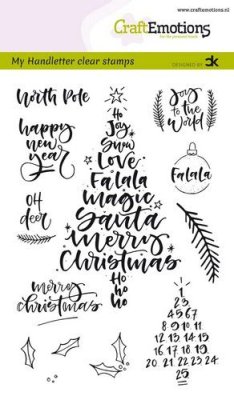 www.craftemotions.nl
CraftEmotions
for the passionate crafter
My Handletter clear stamps
DESIGNED BY
North Pole
Joy
to the
World
happy
new
year
Ho
Joy
Snow
Love
Falala
Magic
Santa
Merry
Christmas
Ho
ho
ho
Falala
OH
deer
merry
christmas
23
4 5 6 7
8 9 10 11
12 13 14
15 16 17
18 19 20
21 22 23 24
25